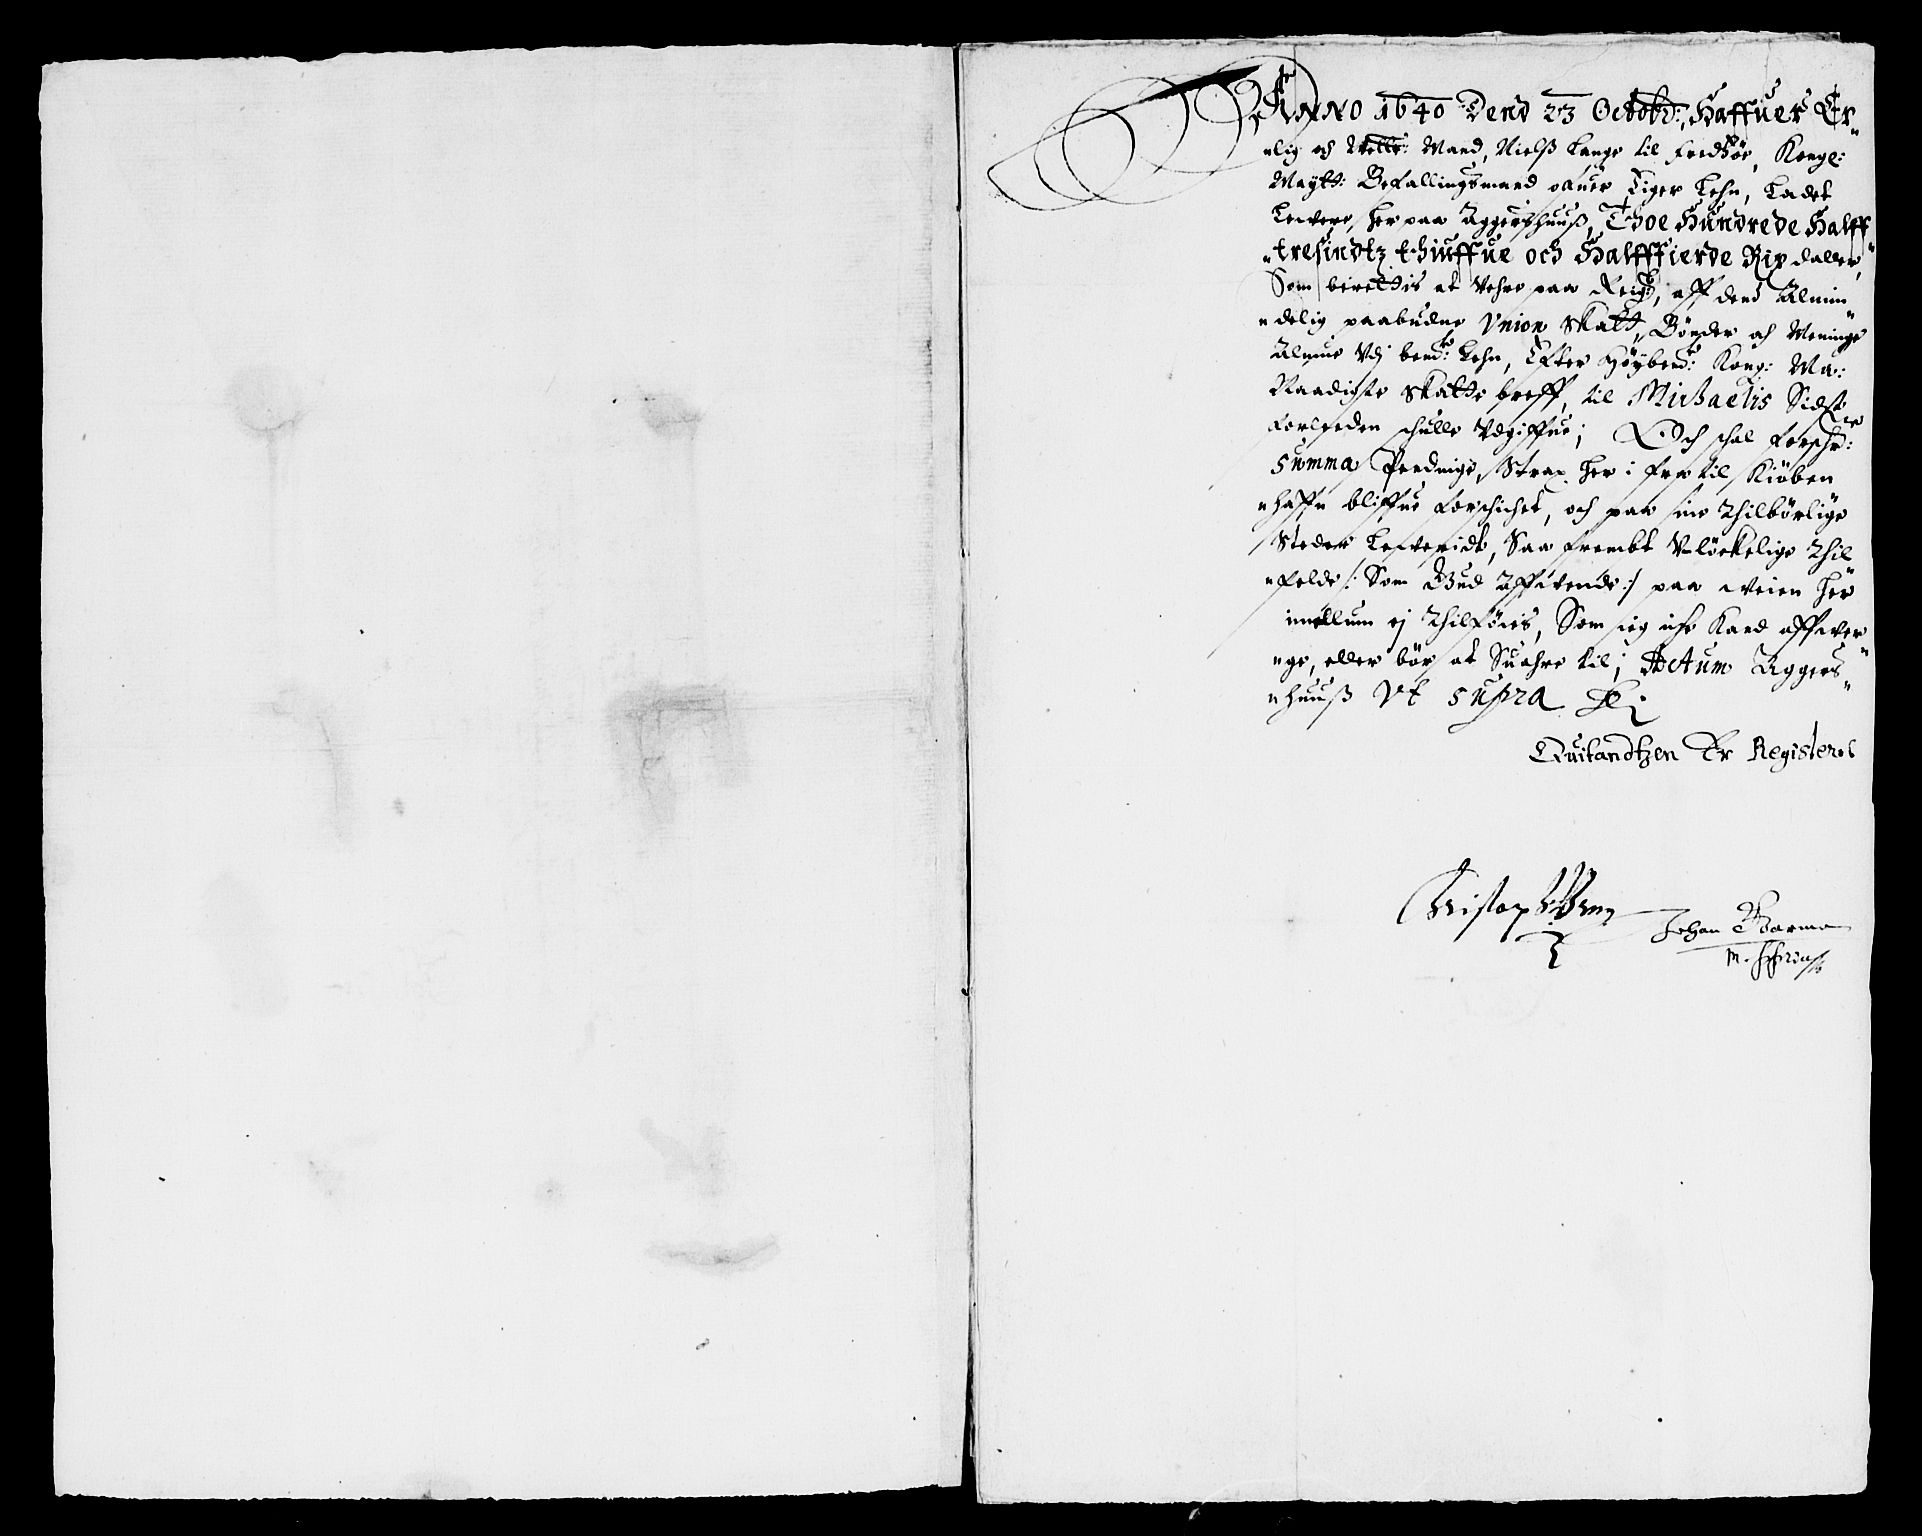 ANNO 1640 Dend 23 Octobr:, Haffuer Er„
„lig och Welb: Mand, Nielß Lange til Fredsøe, Kongl:
Maytt: Befallingsmand offuer Eiger Lehn, Ladet
Leuere, her paa Aggershuuß, Thoe Hundrede Halff
„tresindtz thiuffue och Halfffierde Rix daller,
Som berettis at Vehre paa Reig:, aff dend Almin„
„delig paabudne Vnion Skatt, Bønder och Meninge
Almue Vdj bemt: Lehn, Efter Høybemt: Kong: Ma:
Naadigste Skatte breff, til Michaelis Sidst
Forleeden schulle Vdgiffue; Och schal Forschr:
Summa Pendinge, Strax her i fra til Kiøben
„haffn bliffue Forschichet, och paa sine Thilbørlige
Steder Leuveridt, Saa frembt Vlöckelige Thil
„felde /: Som Gud Affvende :/ paa Weien her
imellum ej Thilføies, Som ieg iche Kand affwer„
„ge, eller bør at Suahre til; Actum Aggers„
„huuß Vt Supra
Quitandtzen Er Registeret
Christopher
Johan Garman